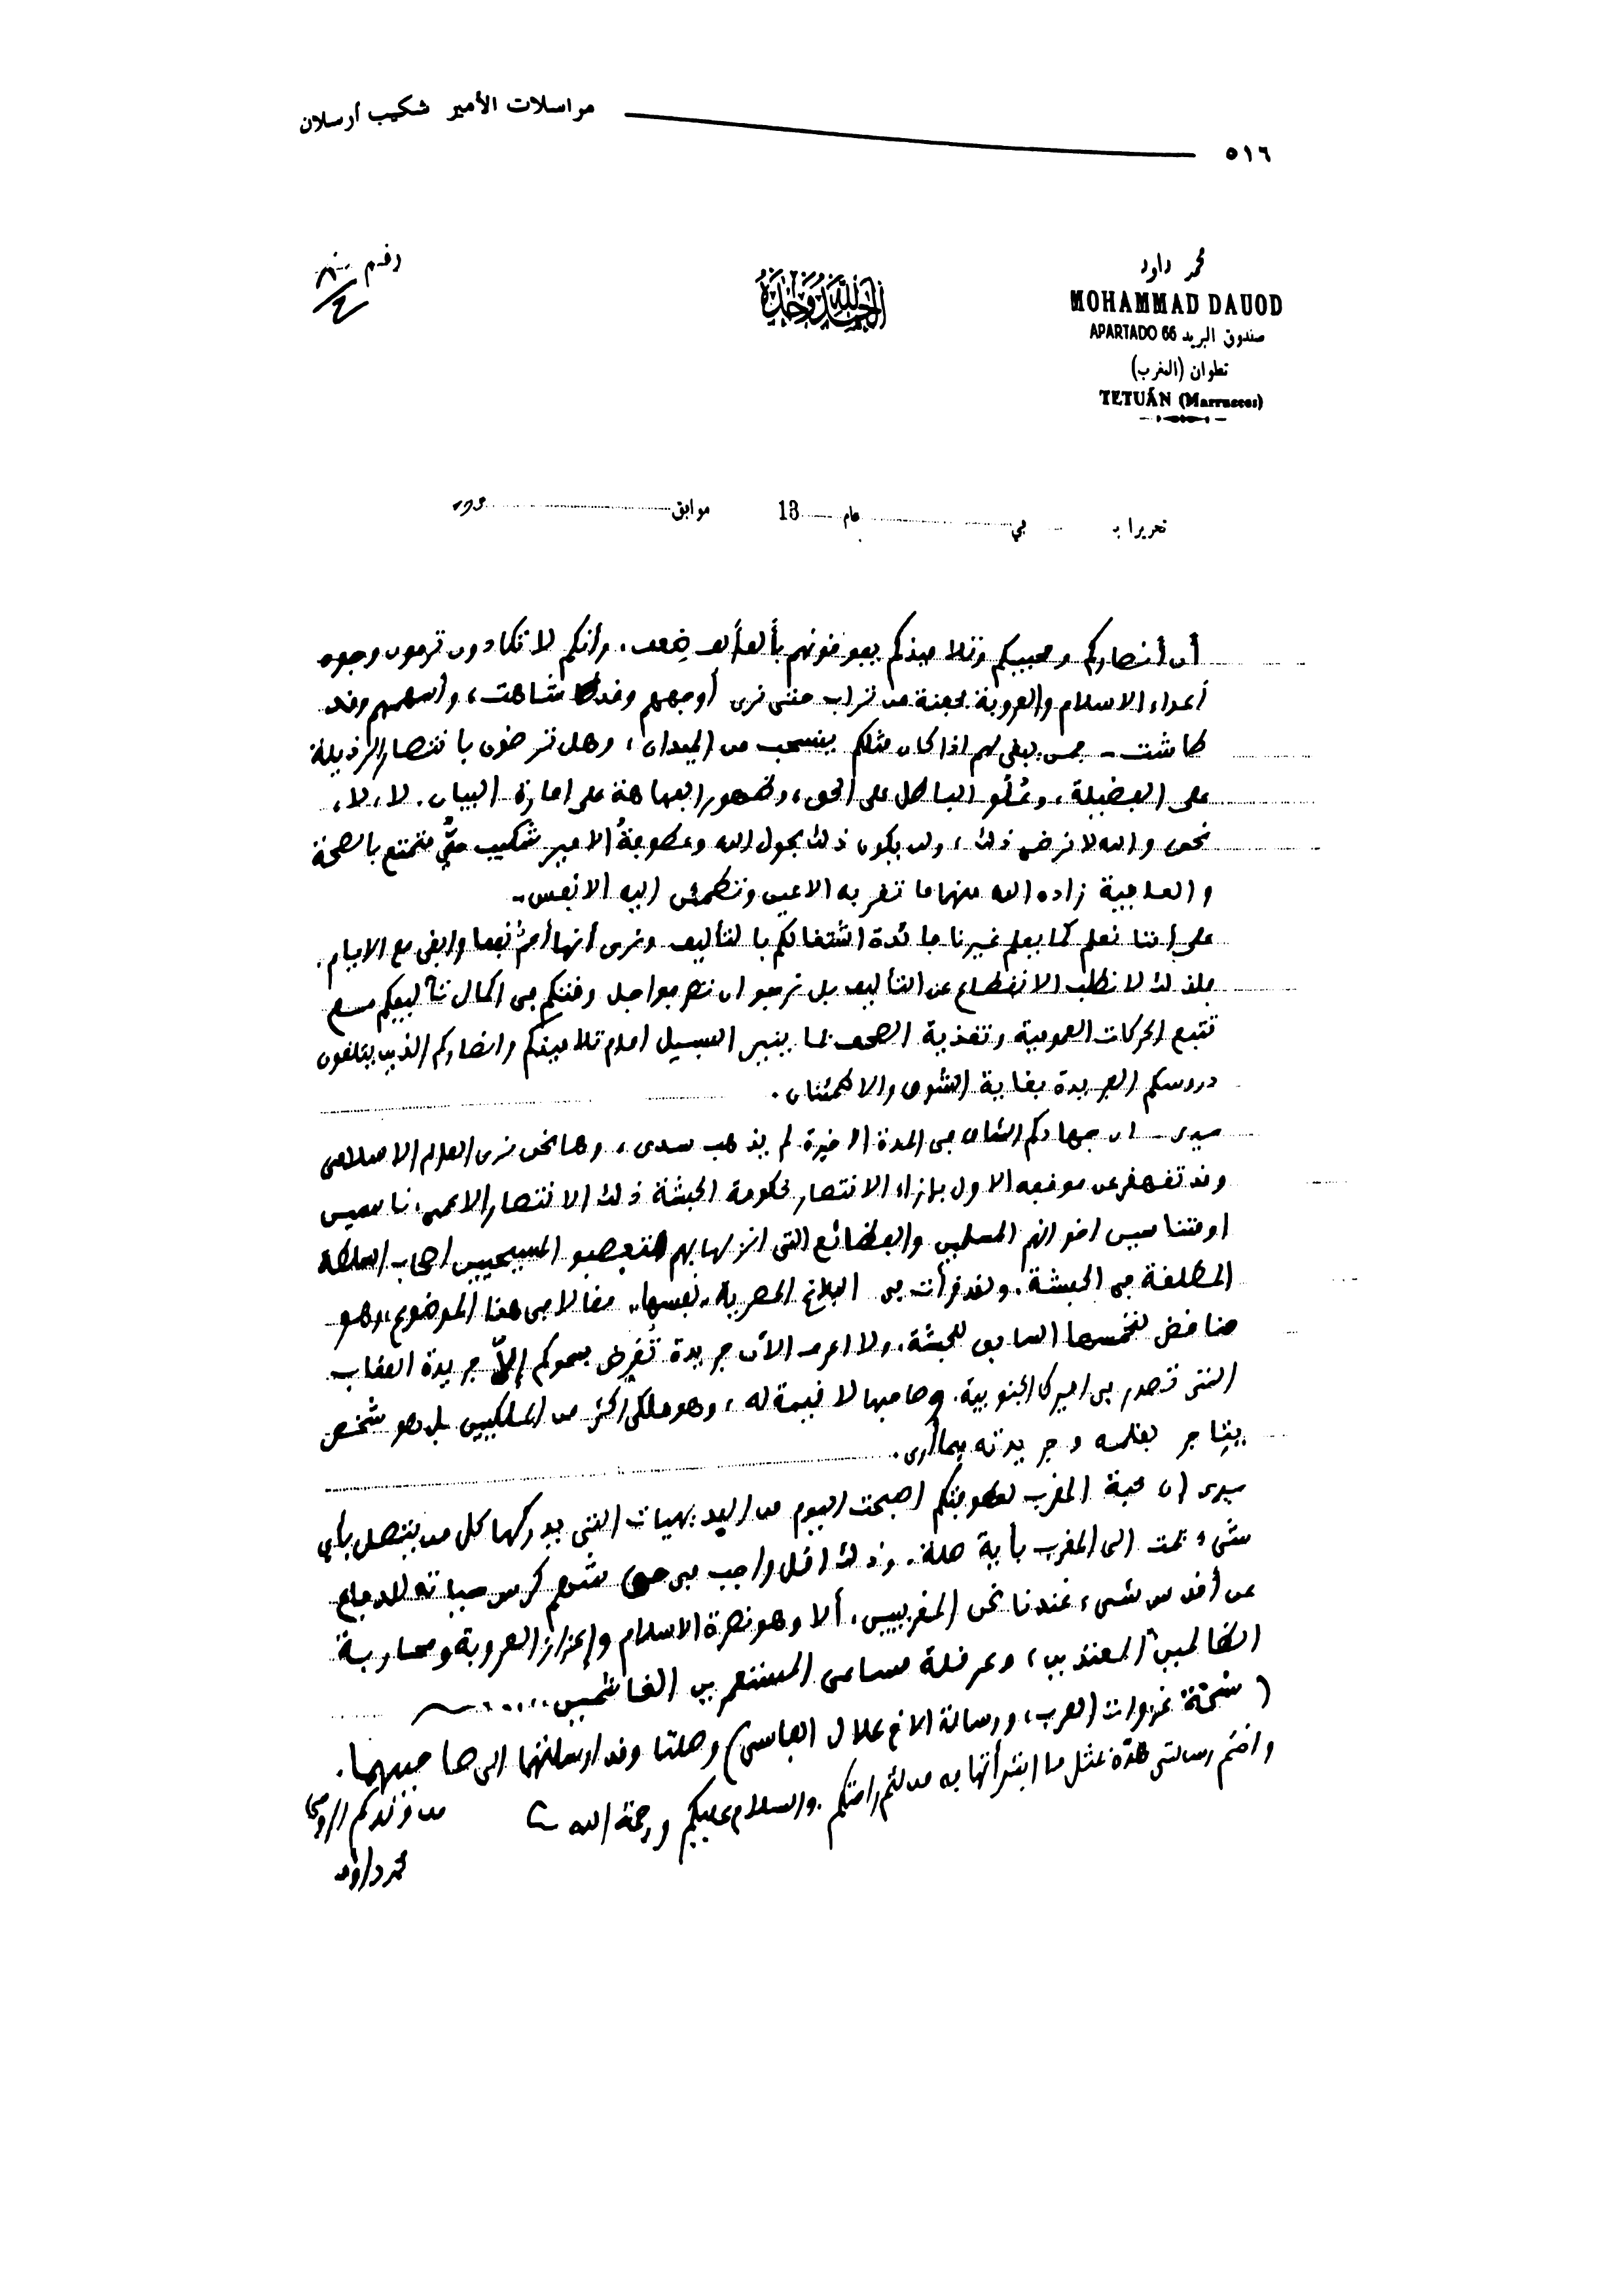 مواسلات الأمير شكيب أرسلان
٥١٦
محمد داود
MOHAMMAD DAUOD
صندوق البريد APARTADO 66
تطوان (المغرب)
TETUÁN (Marruecos)
الحمد لله وحده
رقم
تحريرا بـ في عام 13 موافق
أن أنصاركم ومحبيكم وتلاميذكم يفوقونهم بألف ألف ضعف. وأنكم لا تكادون ترمون وجوه
أعداء الاسلام والعروبة بحفنة من تراب حتى نرى أوجههم وقد شاهت، وأسهمهم وقد
طاشت - فمن يبقى لهم اذا كان مثلكم ينسحب من الميدان، وهل ترضون بانتصار الرذيلة
على الفضيلة، وعُلُو الباطل على الحق، وظهور الفهاهة على امارة البيان. لا، لا،
نحن والله لا نرضى ذلك، ولن يكون ذلك بحول الله وعطوفةُ الامير شكيب حيٌّ متمتع بالصحة
والعافية زاده الله منهما ما تقر به الاعين وتطمئن اليه الانفس -
على أننا نعلم كما يعلم غيرنا فائدة اشتغالكم بالتأليف ونرى أنها أعمّ نفعا وابقى مع الايام.
فلذلك لا نطلب الانقطاع عن التأليف بل نرجو ان تصرفوا جل وقتكم في اكمال تآليفكم مع
تتبع الحركات العمومية وتغذية الصحف بما ينير السبيل امام تلاميذكم وانصاركم الذين يتلقون
دروسكم الفريدة بغاية الشوق والاطمئنان.
سيدي - ان جهادكم الشاق في المدة الاخيرة لم يذهب سدى، وها نحن نرى العالم الاسلامي
وقد تقهقر عن موقفه الاول بازاء الانتصار لحكومة الحبشة ذلك الانتصار الاعمى، ناسيين
او متناسيين اخوانهم المسلمين والفظائع التي انزلها بهم متعصبو المسيحيين اصحاب السلطة
المطلقة في الحبشة. ولقد قرأت في البلاغ المصرية "نفسها" مقالا في هذا الموضوع، وهو
مناقض لتحمسها السابق للحبشة. ولا اعرف الآن جريدة تُعَرِّض بسموكم إلاَّ جريدة
التي تصدر في اميركا الجنوبية. وصاحبها لا قيمة له، وهو ملكي اكثر من الملكيين بل هو شخص
يتاجر بقلمه وجريدته فيما أرى.
سيدي ان محبة المغرب لعطوفتكم اصبحت اليوم من البديهيات التي يدركها كل من يتصل بأي
شيء يمت الى المغرب بأية صلة. وذلك اقل واجب في حق شهم كرس حياته للدفاع
عن أقدس شيء عندنا نحن المغربيين، ألا وهو نصرة الاسلام وإعزاز العروبة ومحاربة
الظالمين المعتدين، وعرقلة مساعي المستعمرين الغاشمين......
(تتمّة غزوات العرب، ورسالة الاخ علال الفاسي) وصلتا وقد ارسلتهما الى صاحبيهما.
واختم رسالتي هذه بمثل ما ابتدأتها به من لثم راحتكم. والسلام عليكم ورحمة الله
من ولدكم الروحي
محمد داود